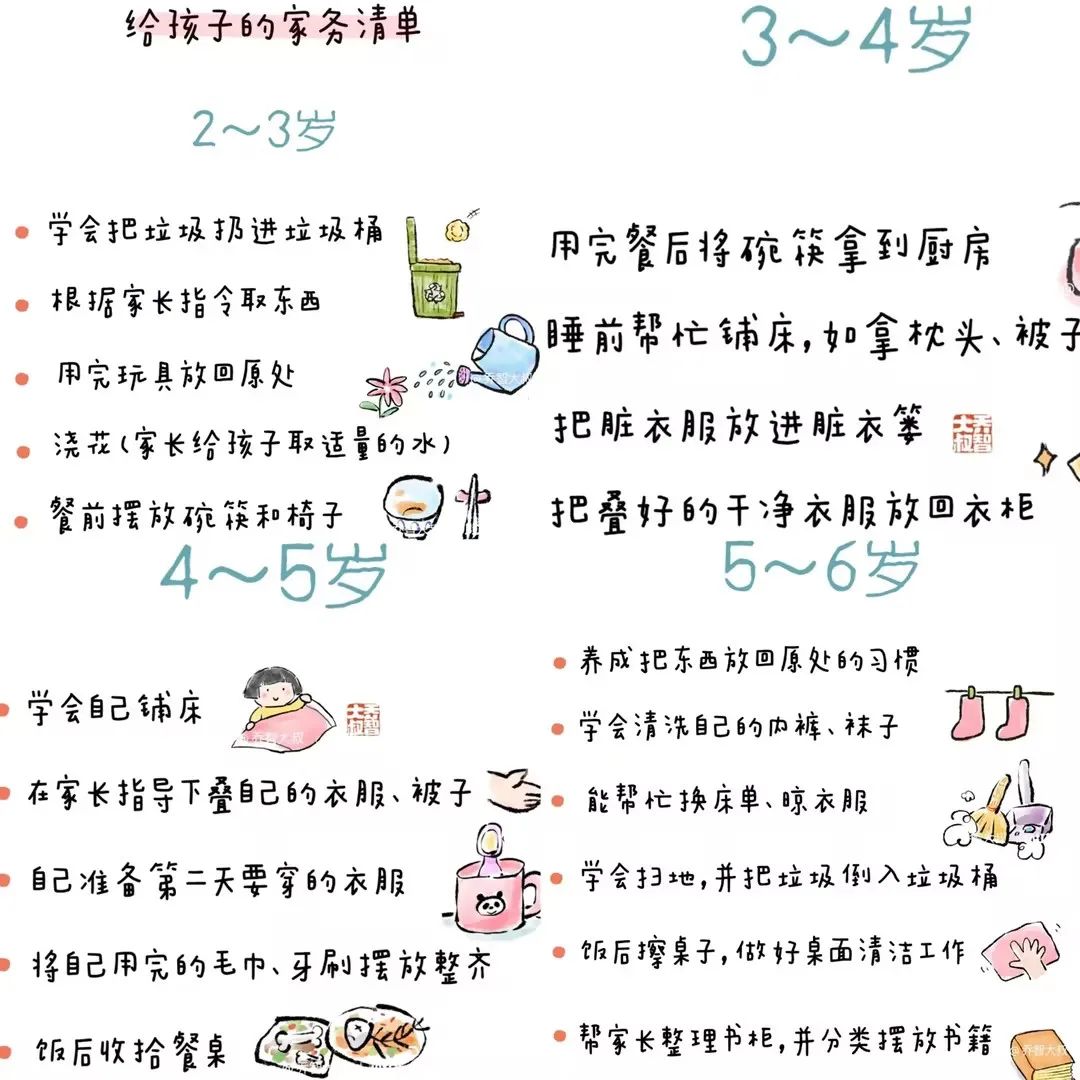 给孩子的家务清单
2～3岁
学会把垃圾扔进垃圾桶
根据家长指令取东西
用完玩具放回原处
浇花(家长给孩子取适量的水)
餐前摆放碗筷和椅子
@乔智大叔
3～4岁
用完餐后将碗筷拿到厨房
睡前帮忙铺床,如拿枕头、被子
把脏衣服放进脏衣篓
把叠好的干净衣服放回衣柜
乔智大叔
4～5岁
学会自己铺床
在家长指导下叠自己的衣服、被子
自己准备第二天要穿的衣服
将自己用完的毛巾、牙刷摆放整齐
饭后收拾餐桌
@乔智大叔
乔智大叔
5～6岁
养成把东西放回原处的习惯
学会清洗自己的内裤、袜子
能帮忙换床单、晾衣服
学会扫地,并把垃圾倒入垃圾桶
饭后擦桌子,做好桌面清洁工作
帮家长整理书柜,并分类摆放书籍
@乔智大叔